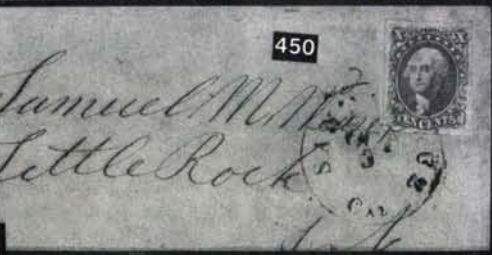 450
X X
TEN CENTS
Samuel M.
Little Rock
CAL